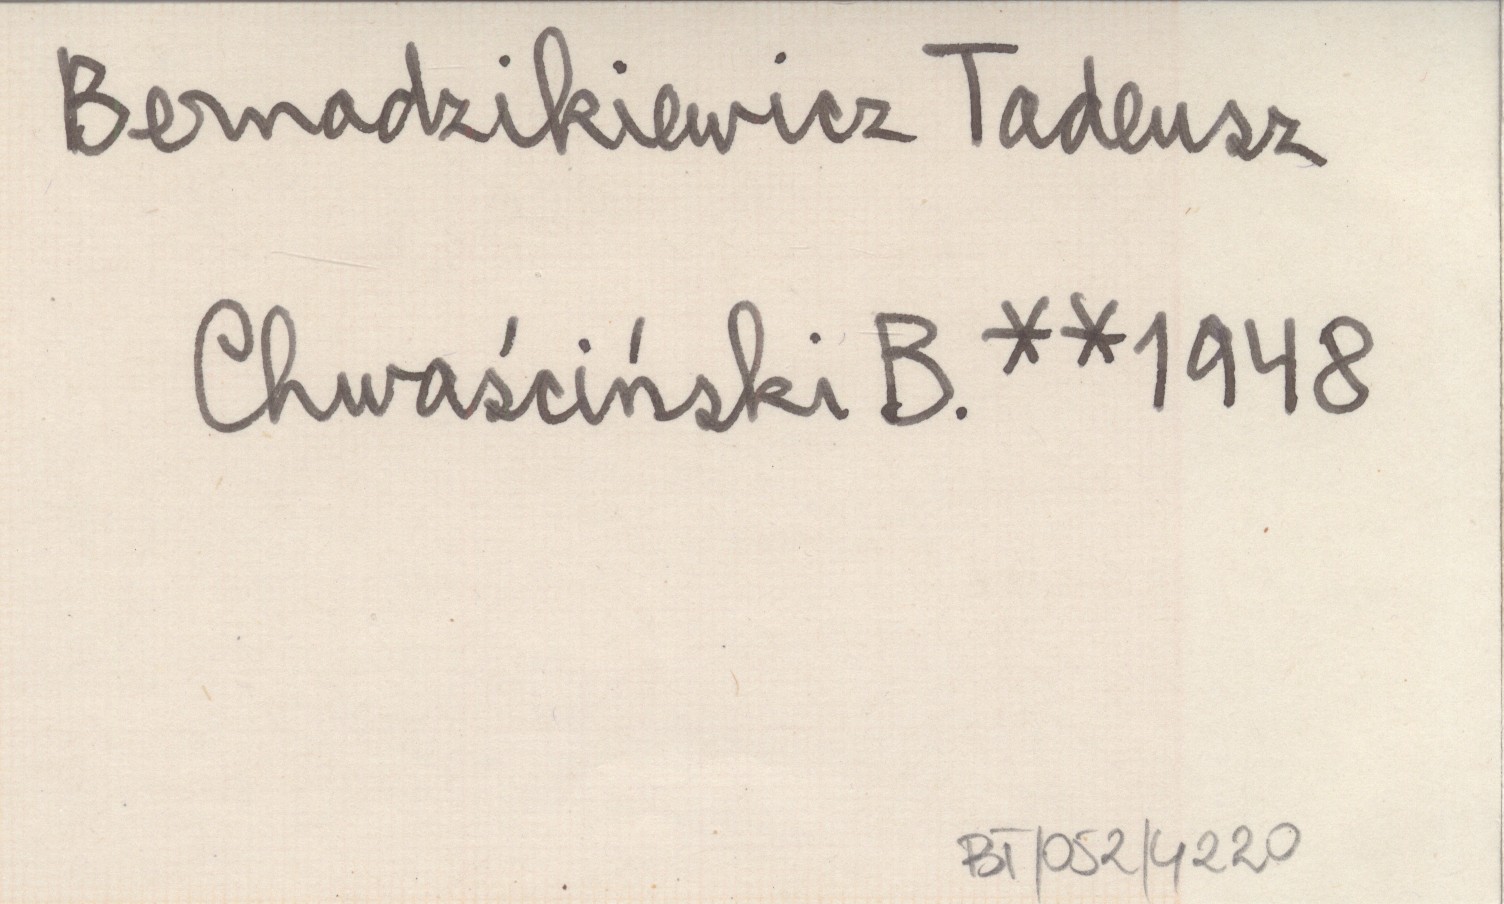 Bernadzikiewicz Tadeusz
Chwaściński B. **1948
BT/052/4220